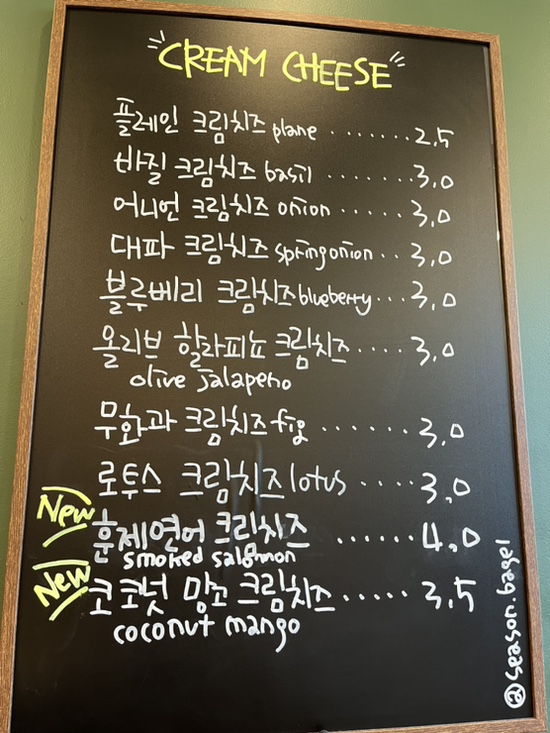 CREAM CHEESE
플레인 크림치즈 plane ....... 2.5
바질 크림치즈 basil ....... 3.0
어니언 크림치즈 onion ..... 3.0
대파 크림치즈 spring onion .. 3.0
블루베리 크림치즈 blueberry ... 3.0
올리브 할라피뇨 크림치즈 .... 3.0
olive jalapeno
무화과 크림치즈 fig ...... 3.0
로투스 크림치즈 lotus .... 3.0
New 훈제연어 크림치즈 ...... 4.0
smoked salmon
New 코코넛 망고 크림치즈 ..... 3.5
coconut mango
@season.bagel